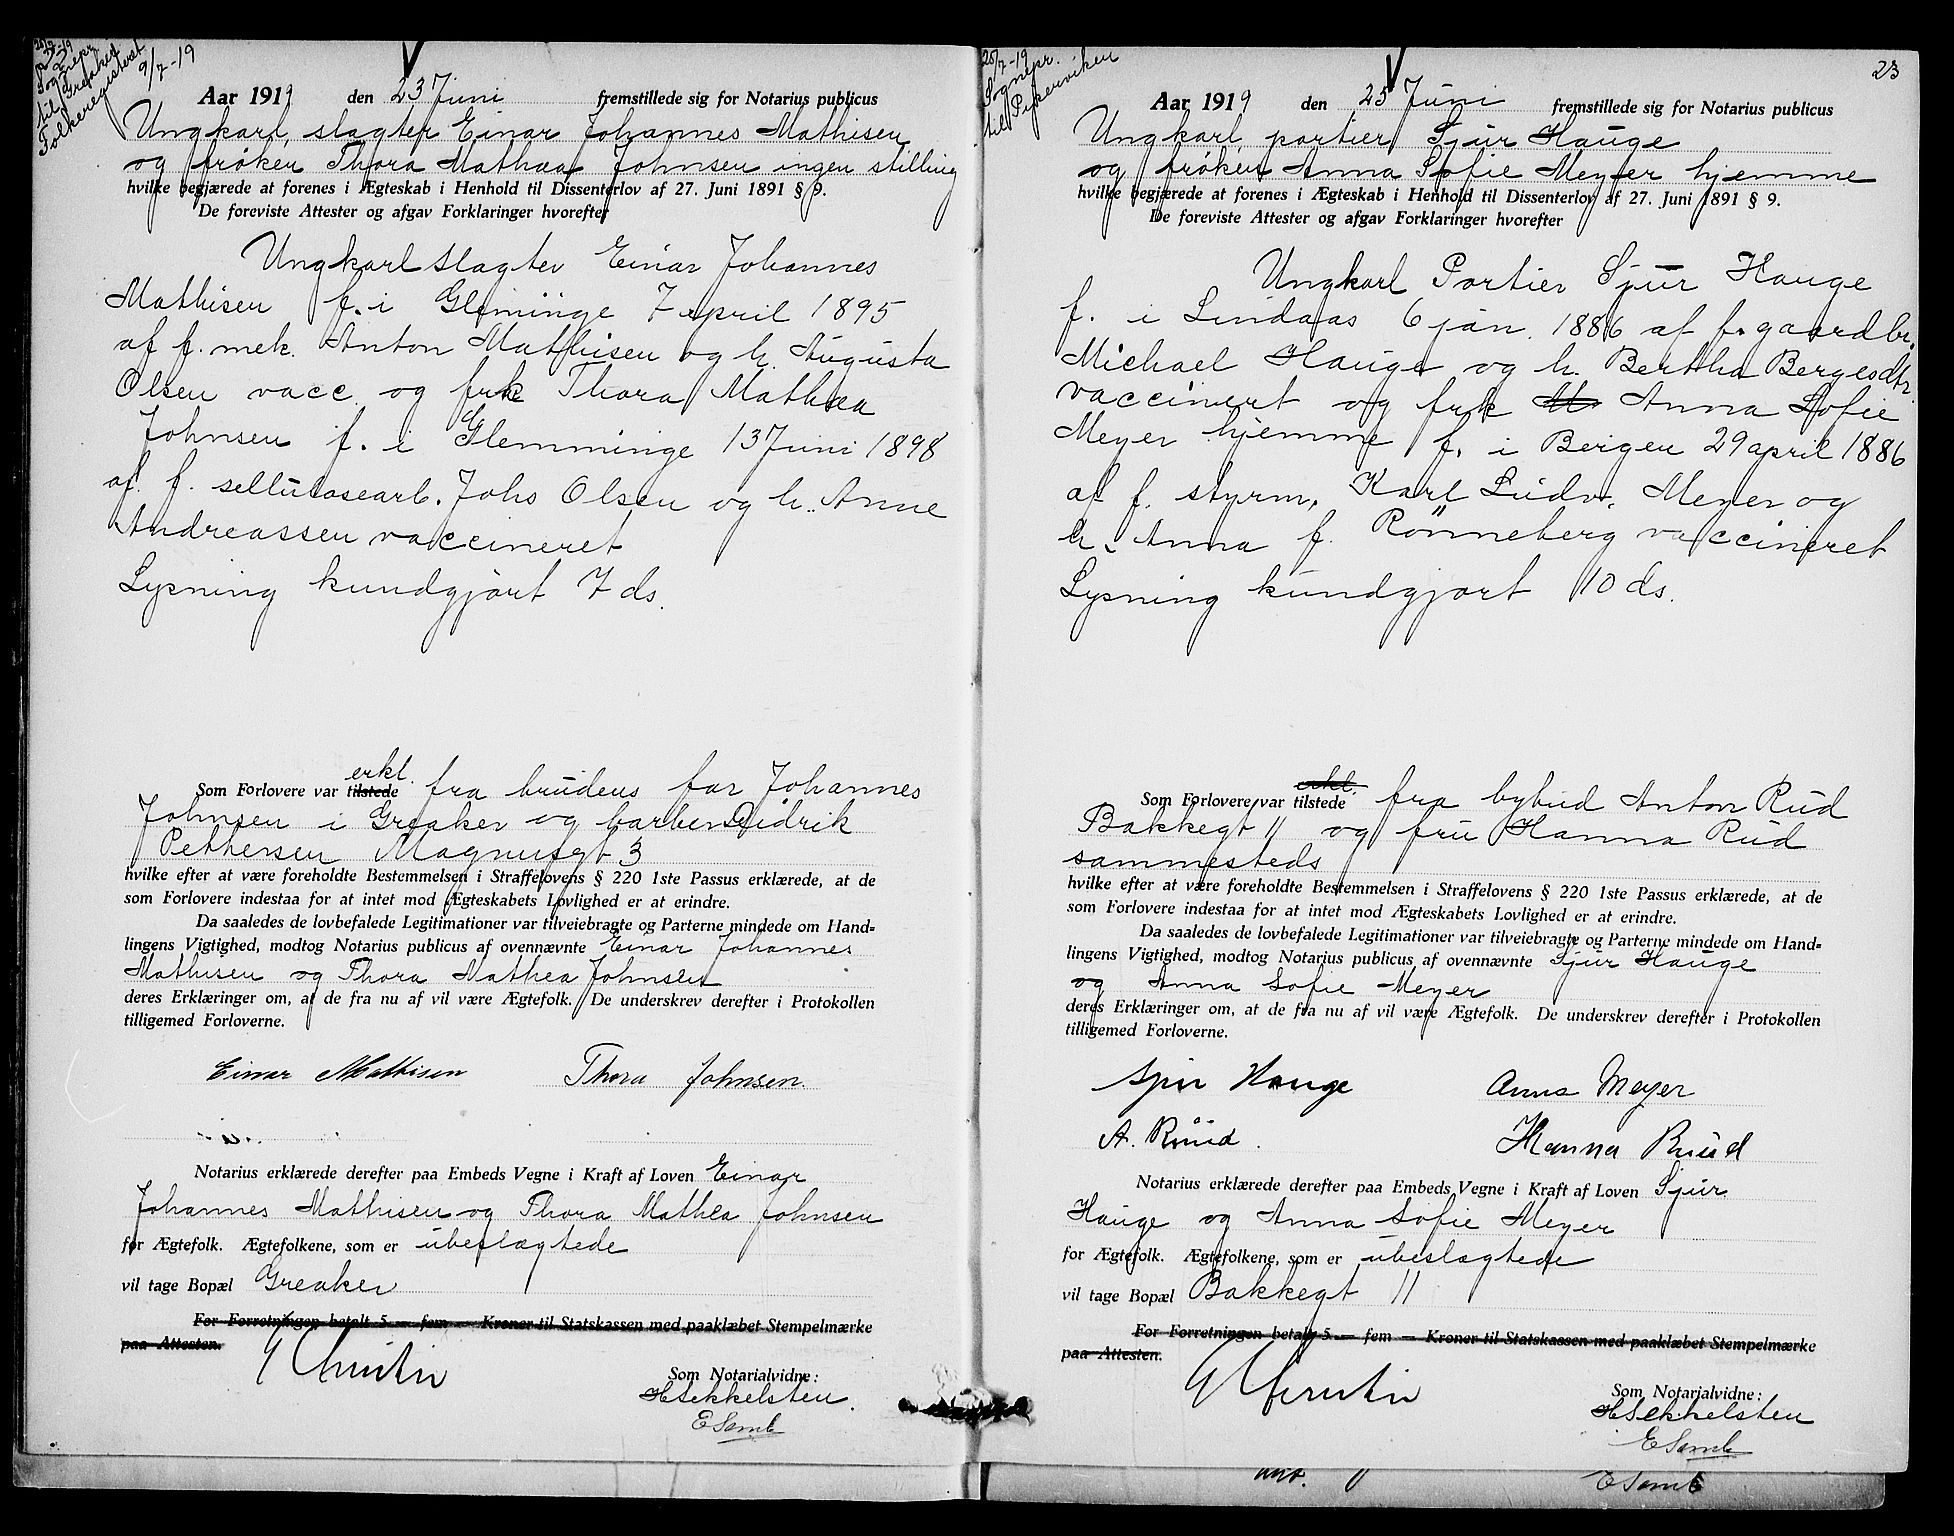 Sognepr.
til Greaker
Folkeregisteret
9/7-19
Aar 1919 den 23 Juni fremstillede sig for Notarius publicus
Ungkarl, slagter Einar Johannes Mathisen
og frøken Thora Mathea Johnsen ingen stilling
hvilke begjærede at forenes i Ægteskab i Henhold til Dissenterlov af 27. Juni 1891 § 9.
De foreviste Attester og afgav Forklaringer hvorefter
Ungkarl slagter Einar Johannes
Mathisen f. i Glemminge 7 april 1895
af f. mek. Anton Mathisen og h. Augusta
Olsen vacc. og frk Thora Mathea
Johnsen f. i Glemminge 13 Juni 1898
af f. sellulosearb. Johs Olsen og h. Anne
Andreassen vaccineret
Lysning kundgjort 7 ds.
erkl.
Som Forlovere var tilstede fra brudens far Johannes
Johnsen i Greaker og barber Didrik
Pettersen Magnusgt 3
hvilke efter at være foreholdte Bestemmelsen i Straffelovens § 220 1ste Passus erklærede, at de
som Forlovere indestaa for at intet mod Ægteskabets Lovlighed er at erindre.
Da saaledes de lovbefalede Legitimationer var tilveiebragte og Parterne mindede om Hand=
lingens Vigtighed, modtog Notarius publicus af ovennævnte Einar Johannes
Mathisen og Thora Mathea Johnsen
deres Erklæringer om, at de fra nu af vil være Ægtefolk. De underskrev derefter i Protokollen
tilligemed Forloverne.
Einar Mathisen Thora Johnsen
Notarius erklærede derefter paa Embeds Vegne i Kraft af Loven Einar
Johannes Mathisen og Thora Mathea Johnsen
for Ægtefolk. Ægtefolkene, som er ubeslægtede
vil tage Bopæl Greaker
For Forretningen betalt 5 — fem — Kroner til Statskassen med paaklæbet Stempelmærke
paa Attesten.
Som Notarialvidne:
HSekkelsten.
E Samb
23
25/7-19
Sognepr.
til Piperviken
Aar 1919 den 25 Juni fremstillede sig for Notarius publicus
Ungkarl, portier Sjur Hauge
og frøken Anna Sofie Meyer hjemme
hvilke begjærede at forenes i Ægteskab i Henhold til Dissenterlov af 27. Juni 1891 § 9.
De foreviste Attester og afgav Forklaringer hvorefter
Ungkarl Portier Sjur Hauge
f. i Lindaas 6 jan. 1886 af f. gaardbr.
Michael Hauge og h. Bertha Bergesdtr.
vaccinert og frk M. Anna Sofie
Meyer hjemme f. i Bergen 29 april 1886
af f. styrm. Karl Ludv. Meyer og
h. Anna f. Rønneberg vaccineret
Lysning kundgjort 10 ds.
erkl.
Som Forlovere var tilstede fra bybud Anton Rud
Bakkegt 11 og fru Hanna Rud
sammesteds
hvilke efter at være foreholdte Bestemmelsen i Straffelovens § 220 1ste Passus erklærede, at de
som Forlovere indestaa for at intet mod Ægteskabets Lovlighed er at erindre.
Da saaledes de lovbefalede Legitimationer var tilveiebragte og Parterne mindede om Hand=
lingens Vigtighed, modtog Notarius publicus af ovennævnte Sjur Hauge
og Anna Sofie Meyer
deres Erklæringer om, at de fra nu af vil være Ægtefolk. De underskrev derefter i Protokollen
tilligemed Forloverne.
Sjur Hauge Anna Meyer
A. Ruud. Hanna Ruud
Notarius erklærede derefter paa Embeds Vegne i Kraft af Loven Sjur
Hauge og Anna Sofie Meyer
for Ægtefolk. Ægtefolkene, som er ubeslægtede
vil tage Bopæl Bakkegt 11
For Forretningen betalt 5 — fem — Kroner til Statskassen med paaklæbet Stempelmærke
paa Attesten.
Som Notarialvidne:
HSekkelsten
E Samb
E Samb